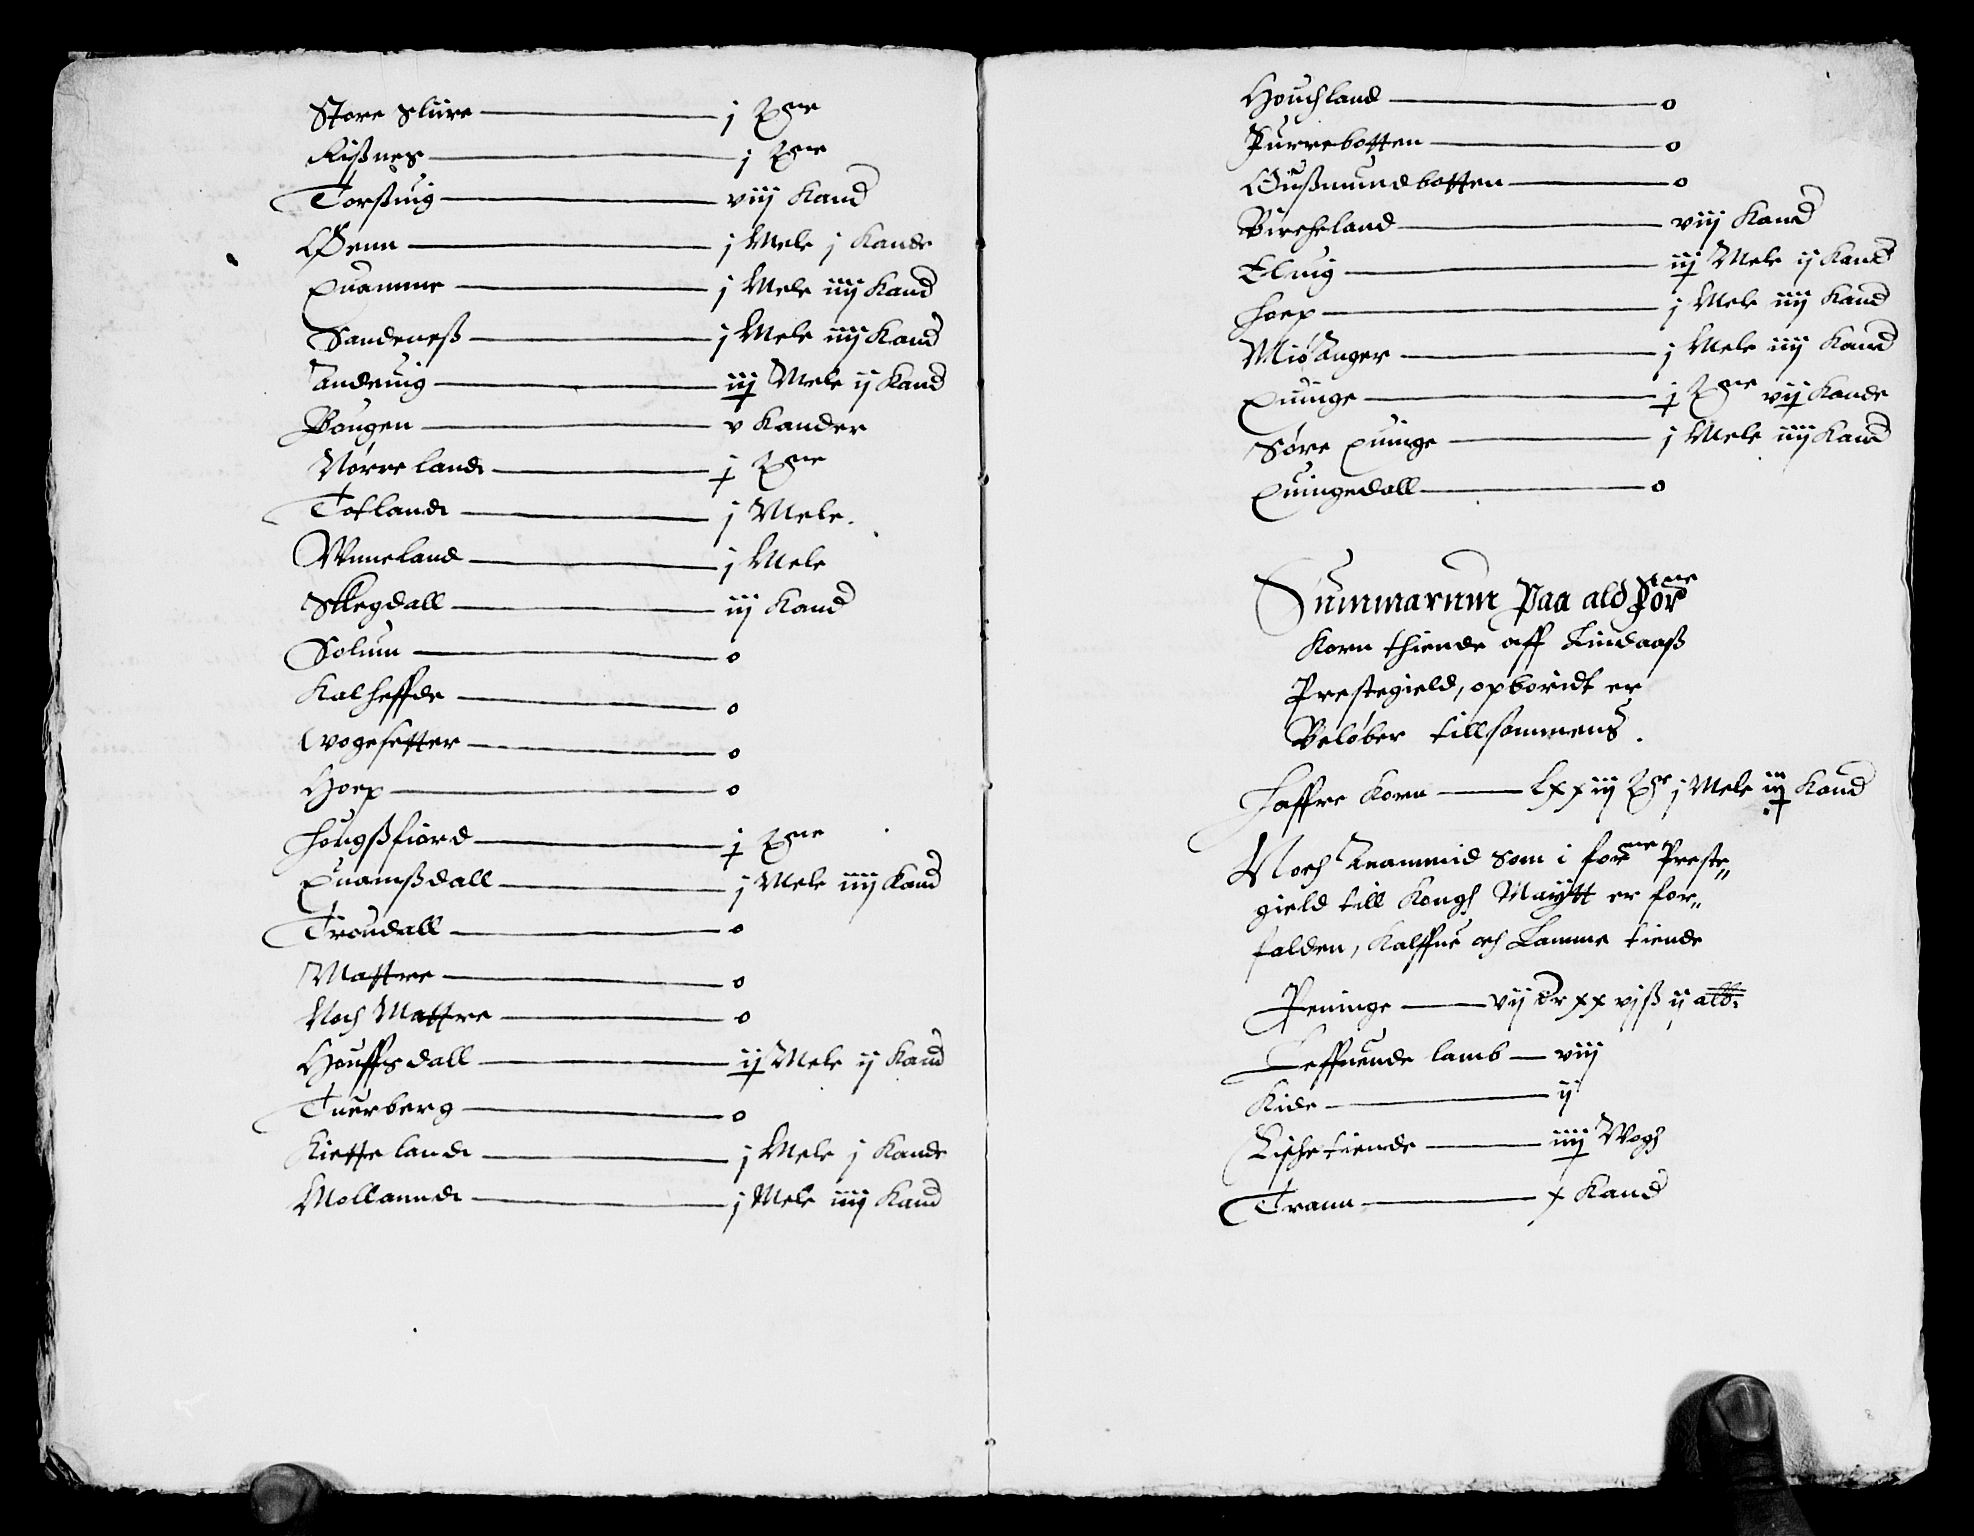 Store Slure — j Tne
Risnes — j Tne
Torsuig — viij Kand
Øenn — j Mele j Kande
Quamme — j Mele iiij Kand
Sandeneß — j Mele iiij Kand
Anduig — iij Mele ij Kand
Bougen — v Kander
Nørre land — j Tne
Totland — j Mele.
Wnneland — j Mele
Sklegdall — iij Kand
Solum — o
Kalheffde — o
Wogesetter — o
Hoep — o
Hougßfiord — j Tne
Quamßdall — j Mele iiij Kand
Troudall — o
Mattre — o
Noch Mattre — o
Houffsdall — ij Mele ij Kand
Tuerberg — o
Kiette land — j Mele j Kande
Mollannd — j Mele iiij Kand
Houchland — o
Purrebotten — o
Gußmundbotten — o
Bircheland — viij Kand
Eluig — iij Mele ij Kand
Hoep — j Mele iiij Kand
Miøanger — j Mele iiij Kand
Quinge — j Tne vij Kande
Søre Quinge — j Mele iiij Kand
Quingedall — o
Summarum Paa ald Forne
Korn thiende aff Lindaaß
Prestegield, opboridt er
Beløber tillsammens.
Haffre Korn — Lxxiij Tne j Mele iij Kand
Noch Annammid som i forne Preste„
gield till Kongh Maytt er for„
falden, Kalffue och Lamme tiende
Peninge — vij Dr xx vjß ij alb:
Leffuende lamb — viij
Kide — ij
Fische tiende — iiij Wogh
Trann — x Kand
8